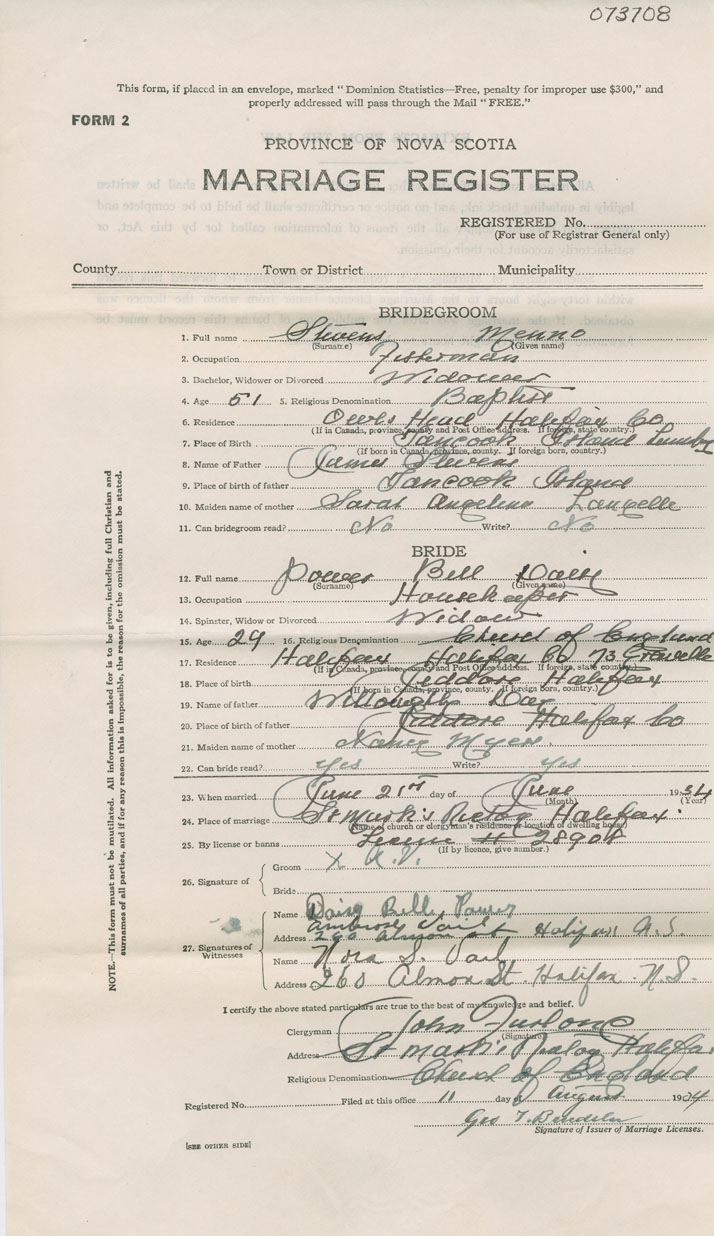 073708
This form, if placed in an envelope, marked "Dominion Statistics—Free, penalty for improper use $300," and
properly addressed will pass through the Mail "FREE."
FORM 2
PROVINCE OF NOVA SCOTIA
MARRIAGE REGISTER
REGISTERED No.
(For use of Registrar General only)
County Town or District Municipality
BRIDEGROOM
1. Full name Stevens Menno
(Surname) (Given name)
2. Occupation Fisherman
3. Bachelor, Widower or Divorced Widower
4. Age 51 5. Religious Denomination Baptist
6. Residence Owls Head Halifax Co
(If in Canada, province, county and Post Office address. If foreign, state country.)
7. Place of Birth Tancook Island
(If born in Canada, province, county. If foreign born, country.)
8. Name of Father James Stevens
9. Place of birth of father Tancook Island
10. Maiden name of mother Sarah Angelina Langelle
11. Can bridegroom read? No Write? No
BRIDE
12. Full name Power Bell Daisy
(Surname) (Given name)
13. Occupation Housekeeper
14. Spinster, Widow or Divorced Widow
15. Age 29 16. Religious Denomination Church of England
17. Residence Halifax Halifax Co 73
(If in Canada, province, county and Post Office address. If foreign, state country.)
18. Place of birth Jeddore Halifax
(If born in Canada, province, county. If foreign born, country.)
19. Name of father
20. Place of birth of father Jeddore Halifax Co
21. Maiden name of mother Nancy Myers.
22. Can bride read? Yes Write? Yes
23. When married June 21st day of June 1934
(Month) (Year)
24. Place of marriage St Mark's Rectory Halifax
(Name of church or clergyman's residence or location of dwelling house)
25. By license or banns License # 28908
(If by licence, give number.)
26. Signature of
Groom X
Bride
27. Signatures of Witnesses
Name Daisy Bell, Power
Ambrose Vail
Address 260 Almon St Halifax N.S.
Name Nora S. Vail
Address 260 Almon St. Halifax. N.S.
I certify the above stated particulars are true to the best of my knowledge and belief.
Clergyman John Furlong
(Signature)
Address St Mark's Rectory Halifax
Religious Denomination Church of England
Registered No. Filed at this office 11 day of August 1934
Geo T.
Signature of Issuer of Marriage Licenses.
[SEE OTHER SIDE]
NOTE.—This form must not be mutilated. All information asked for is to be given, including full Christian and
surnames of all parties, and if for any reason this is impossible, the reason for the omission must be stated.